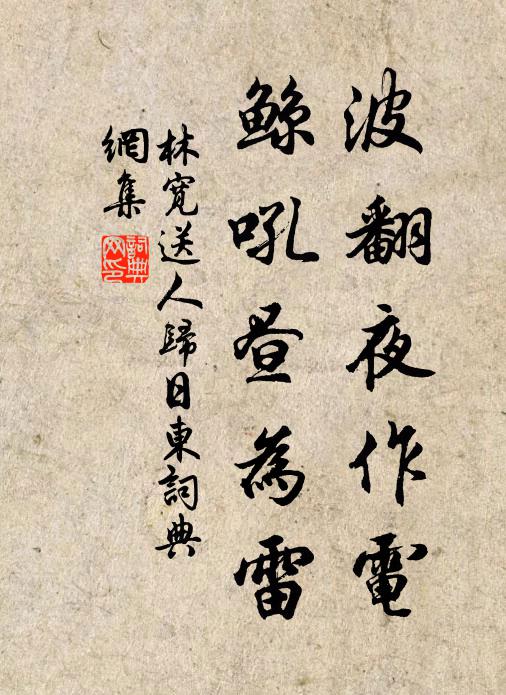 波翻夜作電
鯨吼昼為雷
林寬送人歸日東詞典
網集
詞典
网印